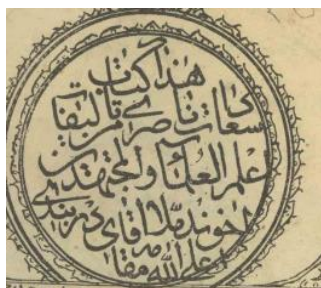 هذا كتاب
سعادات ناصرى من تاليفات
اعلم العلماء والمجتهدين
اخوند ملا اقاى دربندى
اعلى الله مقامه